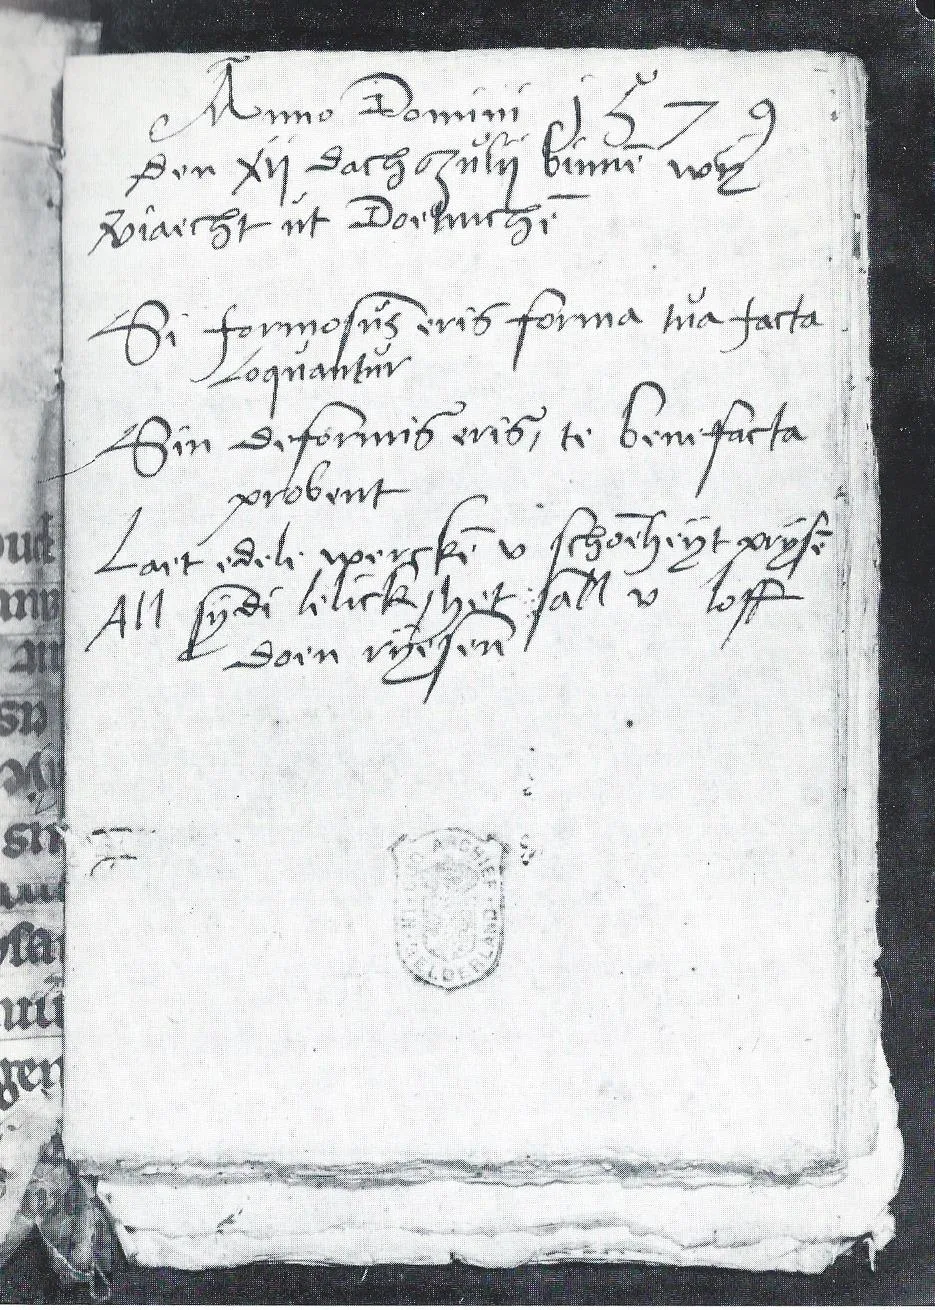 Anno Domini 1579
Den xij dach Julij binnē wij
ut Doetinchē
Si formosus eris forma tua facta
Loquantur
Sin deformis eris, te benefacta
probent
Laet edele werckē v schoēheijt prijsē
All sijdi lelick, het sall v loff
doen rijesen
ARCHIEF
GELDERLAND